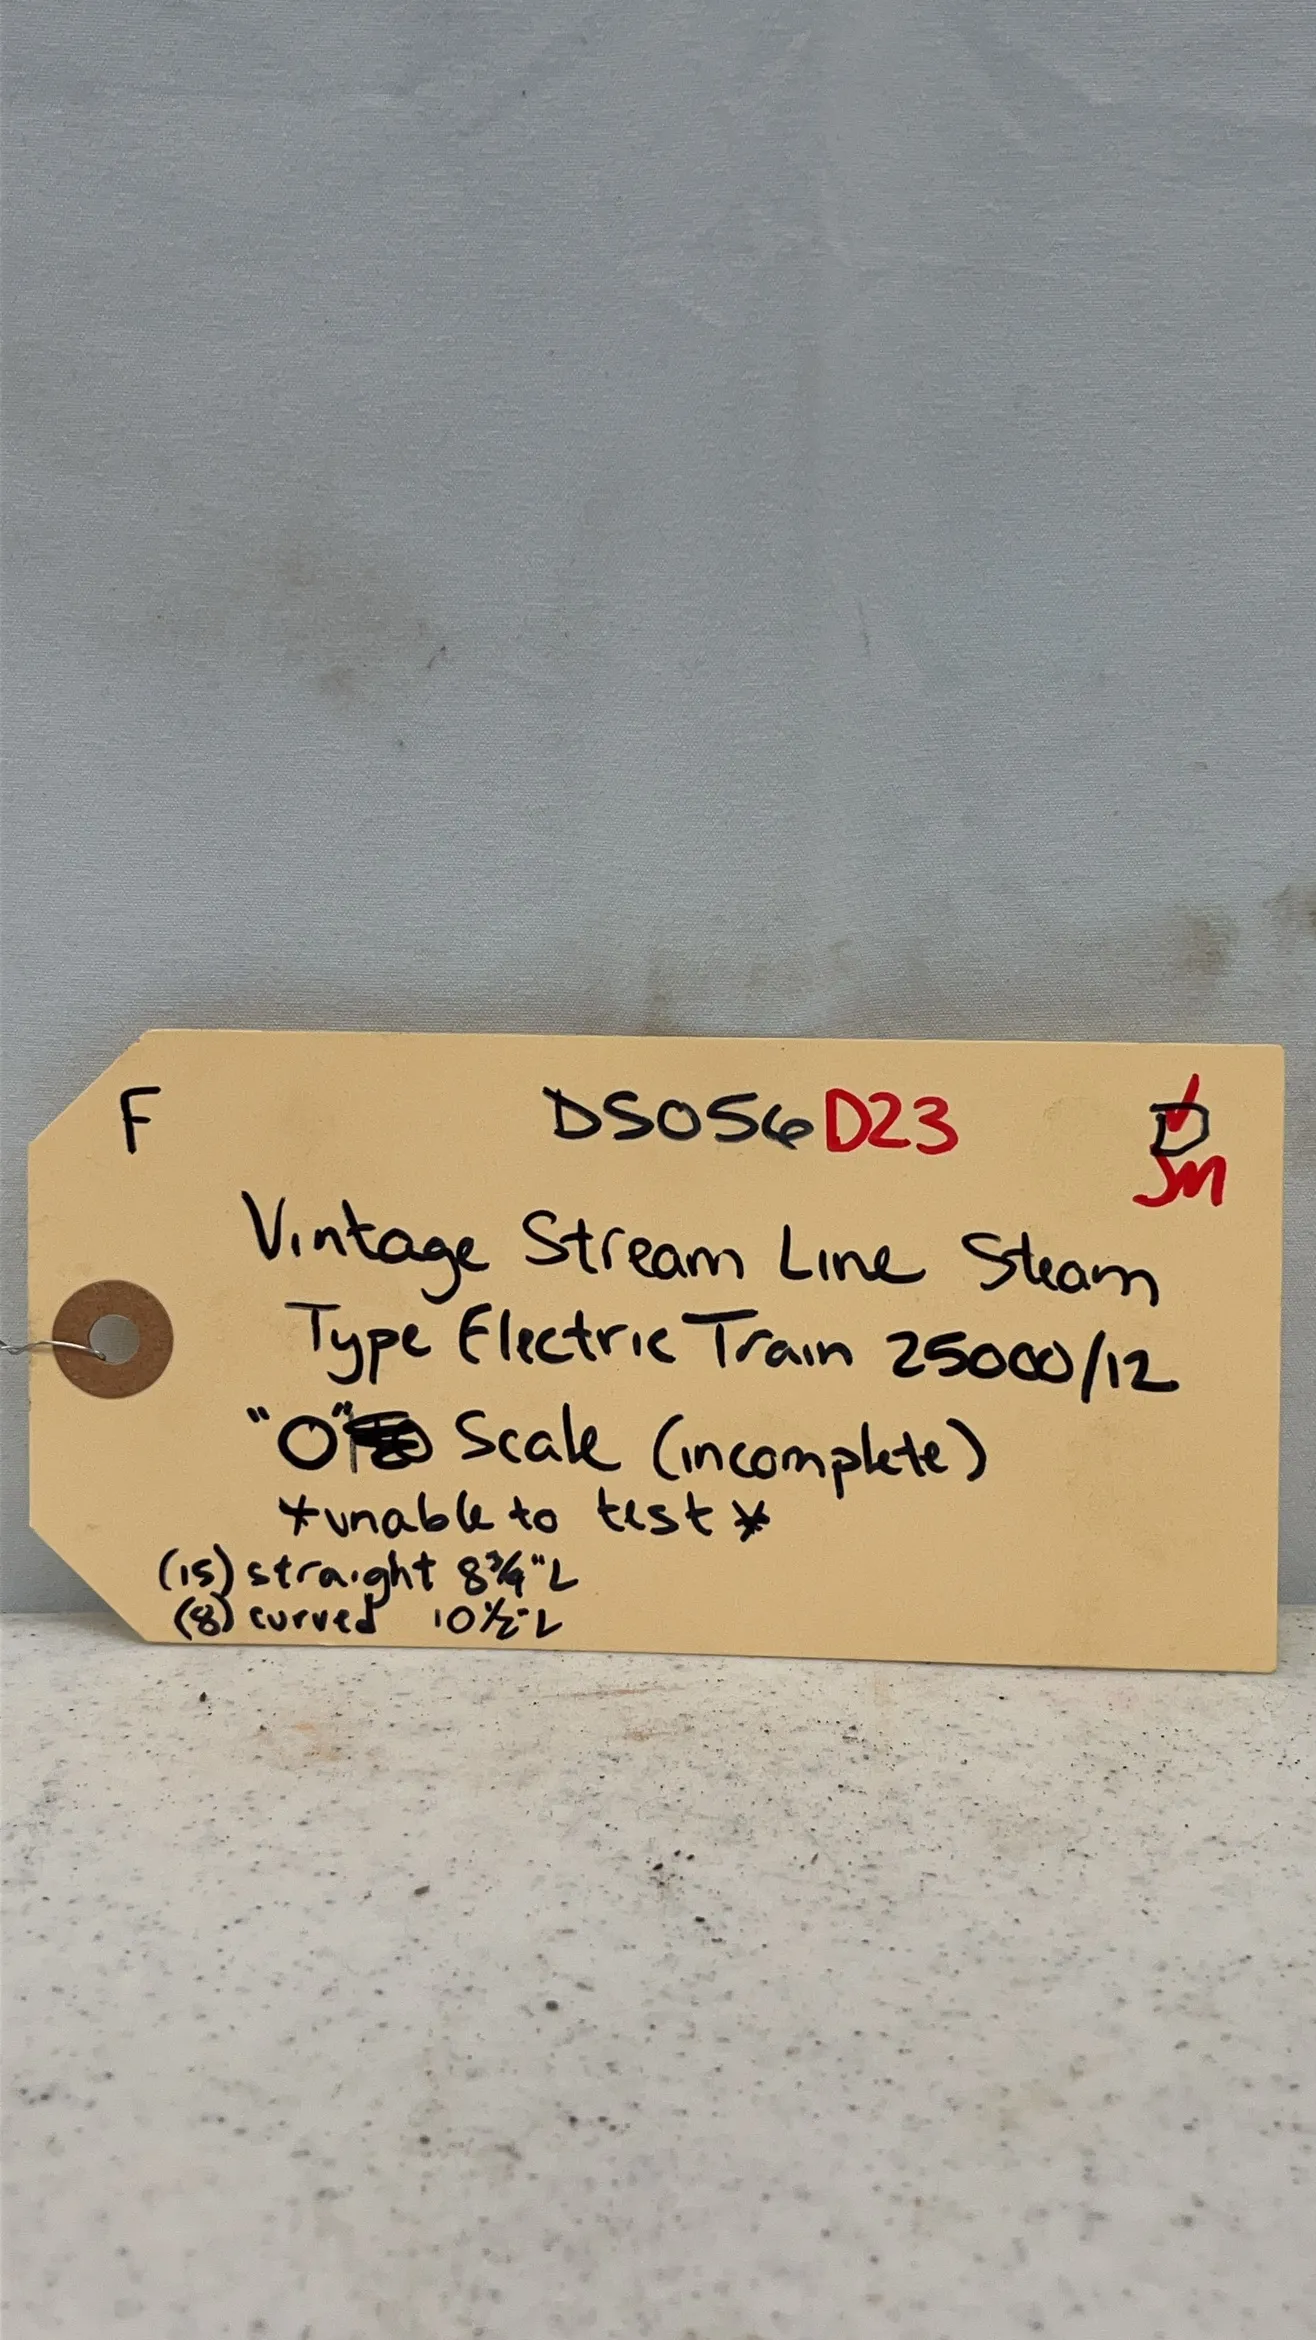 F DS056D23
JM
Vintage Stream Line Steam
Type Electric Train 25000/12
"O" Scale (incomplete)
*unable to test*
(15) straight 8 3/4" L
(8) curved 10 1/2" L